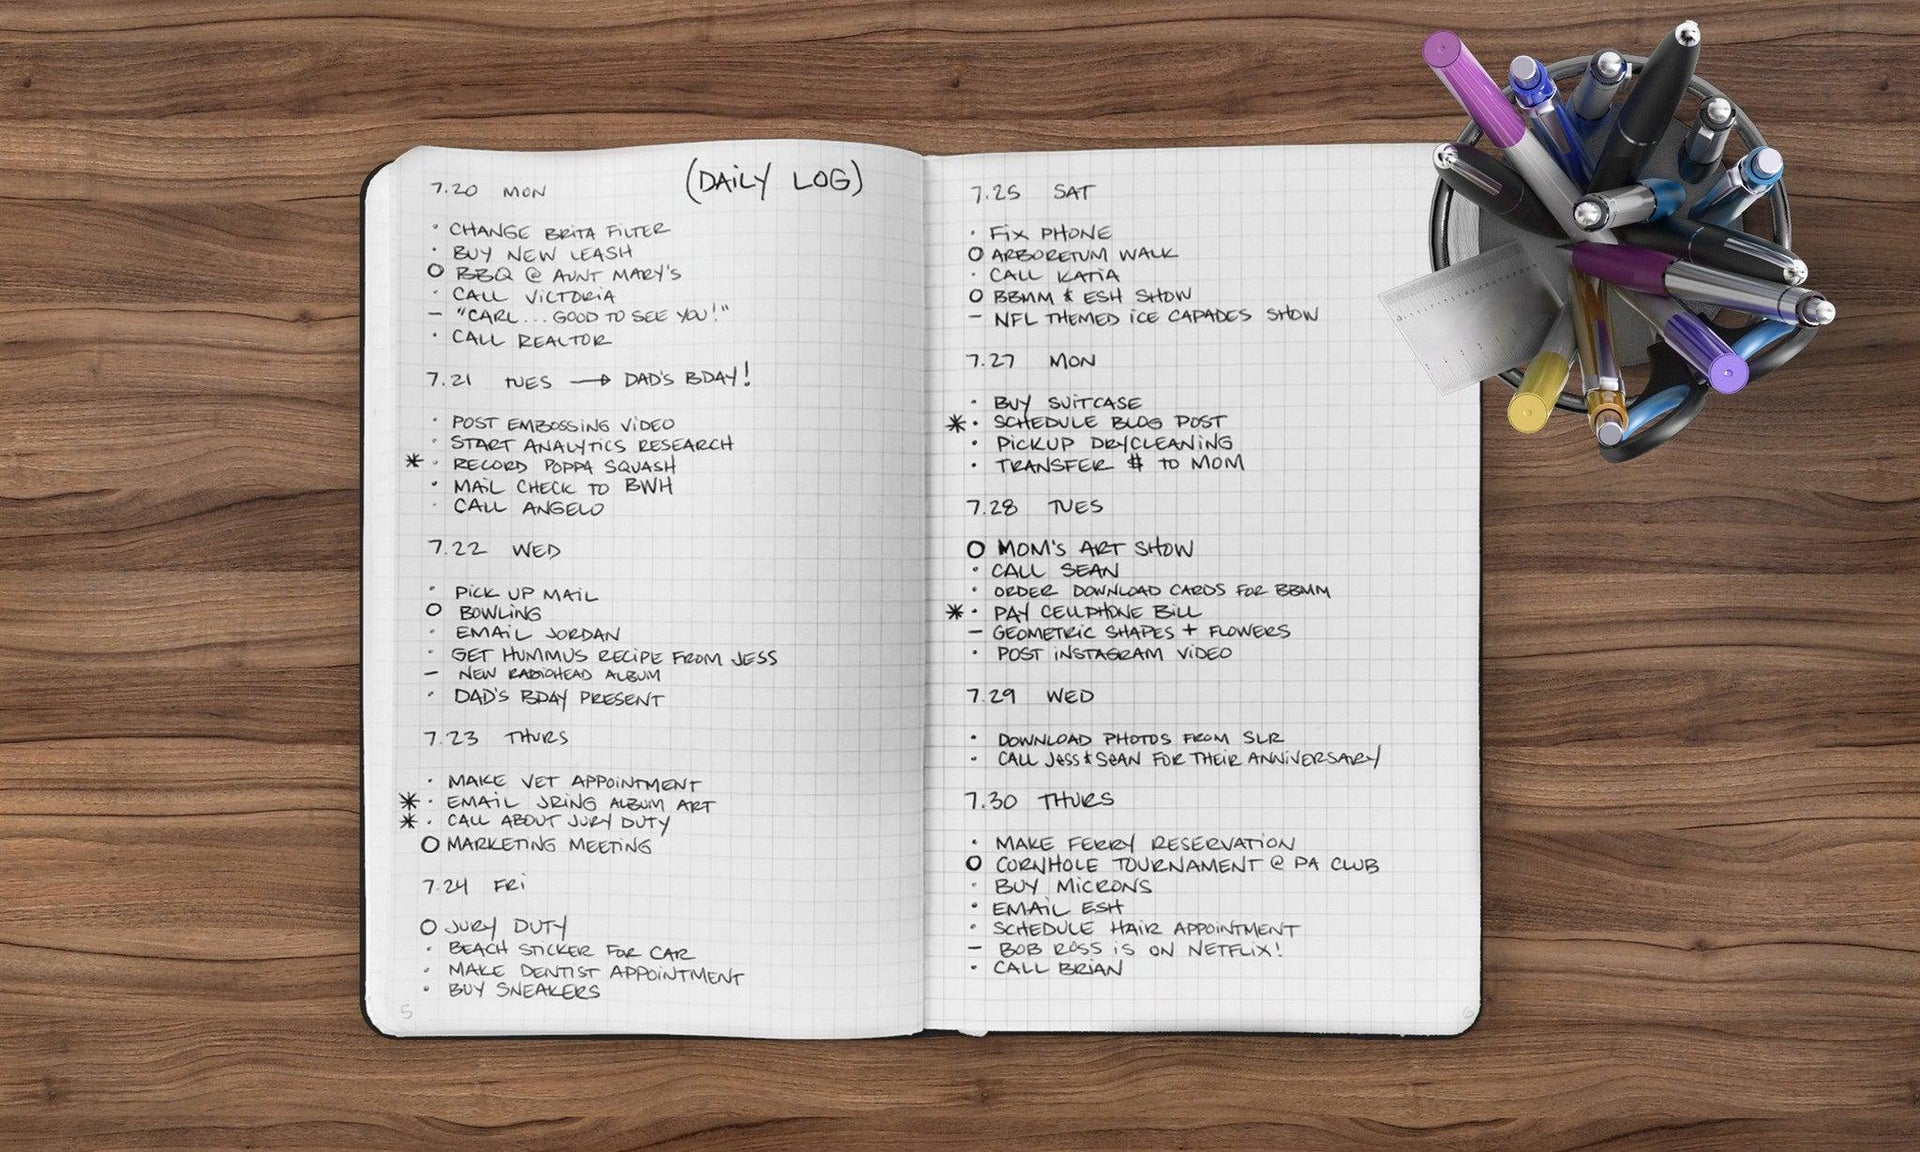 (DAILY LOG)
7.20 MON
· CHANGE BRITA FILTER
· BUY NEW LEASH
O BBQ @ AUNT MARY'S
· CALL VICTORIA
– "CARL... GOOD TO SEE YOU!"
· CALL REALTOR
7.21 TUES → DAD'S BDAY!
· POST EMBOSSING VIDEO
· START ANALYTICS RESEARCH
* · RECORD POPPA SQUASH
· MAIL CHECK TO BWH
· CALL ANGELO
7.22 WED
· PICK UP MAIL
O BOWLING
· EMAIL JORDAN
· GET HUMMUS RECIPE FROM JESS
– NEW RADIOHEAD ALBUM
· DAD'S BDAY PRESENT
7.23 THURS
· MAKE VET APPOINTMENT
* · EMAIL JRING ALBUM ART
* · CALL ABOUT JURY DUTY
O MARKETING MEETING
7.24 FRI
O JURY DUTY
· BEACH STICKER FOR CAR
· MAKE DENTIST APPOINTMENT
· BUY SNEAKERS
5
7.25 SAT
· FIX PHONE
O ARBORETUM WALK
· CALL KATIA
O BBMM & ESH SHOW
– NFL THEMED ICE CAPADES SHOW
7.27 MON
· BUY SUITCASE
* · SCHEDULE BLOG POST
· PICKUP DRYCLEANING
· TRANSFER $ TO MOM
7.28 TUES
O MOM'S ART SHOW
· CALL SEAN
· ORDER DOWNLOAD CARDS FOR BBMM
* · PAY CELLPHONE BILL
– GEOMETRIC SHAPES + FLOWERS
· POST INSTAGRAM VIDEO
7.29 WED
· DOWNLOAD PHOTOS FROM SLR
· CALL JESS & SEAN FOR THEIR ANNIVERSARY
7.30 THURS
· MAKE FERRY RESERVATION
O CORNHOLE TOURNAMENT @ PA CLUB
· BUY MICRONS
· EMAIL ESH
· SCHEDULE HAIR APPOINTMENT
– BOB ROSS IS ON NETFLIX!
· CALL BRIAN
6